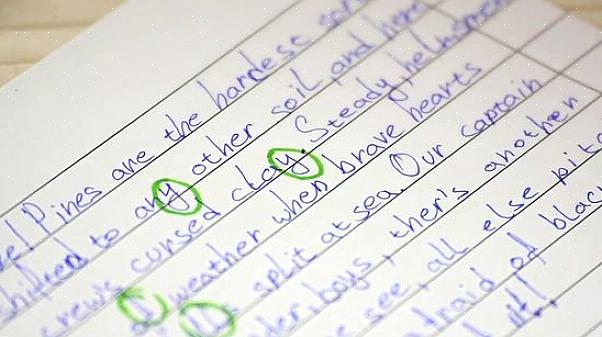 Pines are the hardese
shifted to any other soil, and here
crew's cursed clay. Steady, helmsmen
weather when brave hearts
split at sea. Our captain
boys, ther's another
see, all else
afraid of
it!